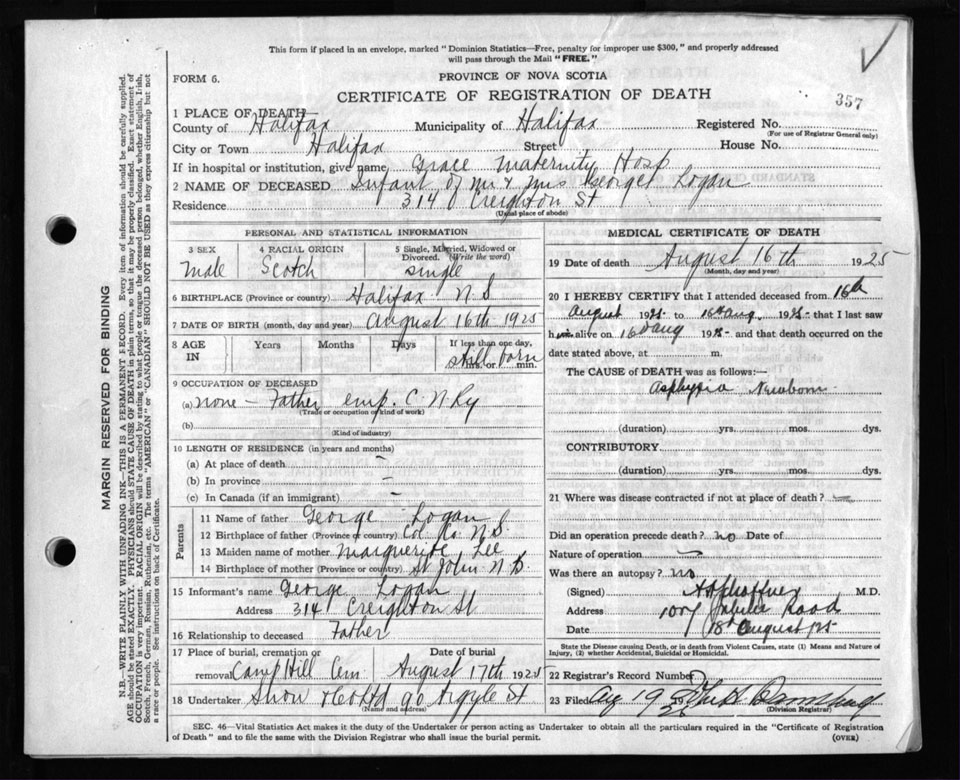 This form if placed in an envelope, marked "Dominion Statistics—Free, penalty for improper use $300," and properly addressed
will pass through the Mail "FREE."
FORM 6.
PROVINCE OF NOVA SCOTIA
CERTIFICATE OF REGISTRATION OF DEATH
357
1 PLACE OF DEATH
County of Halifax Municipality of Halifax Registered No.
(For use of Registrar General only)
City or Town Halifax Street House No.
If in hospital or institution, give name Grace Maternity Hosp
2 NAME OF DECEASED Infant of Mr & Mrs George Logan
Residence 314 Creighton St
(Usual place of abode)
PERSONAL AND STATISTICAL INFORMATION
3 SEX Male
4 RACIAL ORIGIN Scotch
5 Single, Married, Widowed or
Divorced. (Write the word)
single
6 BIRTHPLACE (Province or country) Halifax N.S
7 DATE OF BIRTH (month, day and year) August 16th 1925
8 AGE IN Years Months Days If less than one day,
still born
hrs. or min.
9 OCCUPATION OF DECEASED
(a) none - Father emp. C N Ry
(Trade or occupation or kind of work)
(b)
(Kind of industry)
10 LENGTH OF RESIDENCE (in years and months)
(a) At place of death –
(b) In province –
(c) In Canada (if an immigrant) –
Parents
11 Name of father George Logan
12 Birthplace of father (Province or country) Col. Co N.S.
13 Maiden name of mother Marguerite Lee
14 Birthplace of mother (Province or country) St John N.B.
15 Informant's name George Logan
Address 314 Creighton St
16 Relationship to deceased Father
17 Place of burial, cremation or Date of burial
removal Camp Hill Cem. August 17th 1925
18 Undertaker Snow & Co Ltd 90 Argyle St
(Name and address)
MEDICAL CERTIFICATE OF DEATH
19 Date of death August 16th 1925
(Month, day and year)
20 I HEREBY CERTIFY that I attended deceased from 16th
August 1925 to 16 Aug. 1925 that I last saw
him alive on 16 Aug 1925 and that death occurred on the
date stated above, at m.
The CAUSE of DEATH was as follows:
Asphyxia Newborn
(duration) yrs. mos. dys.
CONTRIBUTORY.
(duration) yrs. mos. dys.
21 Where was disease contracted if not at place of death?
Did an operation precede death? no Date of
Nature of operation
Was there an autopsy? no
(Signed) M.D.
Address 107 Jubilee Road
Date 18th August 1925
State the Disease causing Death, or in death from Violent Causes, state (1) Means and Nature of
Injury, (2) whether Accidental, Suicidal or Homicidal.
22 Registrar's Record Number
23 Filed Aug 19 192
(Division Registrar)
SEC. 46—Vital Statistics Act makes it the duty of the Undertaker or person acting as Undertaker to obtain all the particulars required in the "Certificate of Registration
of Death" and to file the same with the Division Registrar who shall issue the burial permit.
(OVER)
MARGIN RESERVED FOR BINDING
N.B.—WRITE PLAINLY WITH UNFADING INK—THIS IS A PERMANENT RECORD. Every item of information should be carefully supplied.
AGE should be stated EXACTLY. PHYSICIANS should STATE CAUSE OF DEATH in plain terms, so that it may be properly classified. Exact statement of
OCCUPATION is very important. RACIAL ORIGIN will be described by stating to what people or tongue the deceased person belonged, whether English, Irish,
Scotch, French, German, Russian, Ruthenian, etc. The terms "AMERICAN" or "CANADIAN" SHOULD NOT BE USED as they express citizenship but not
a race or people. See instructions on back of Certificate.